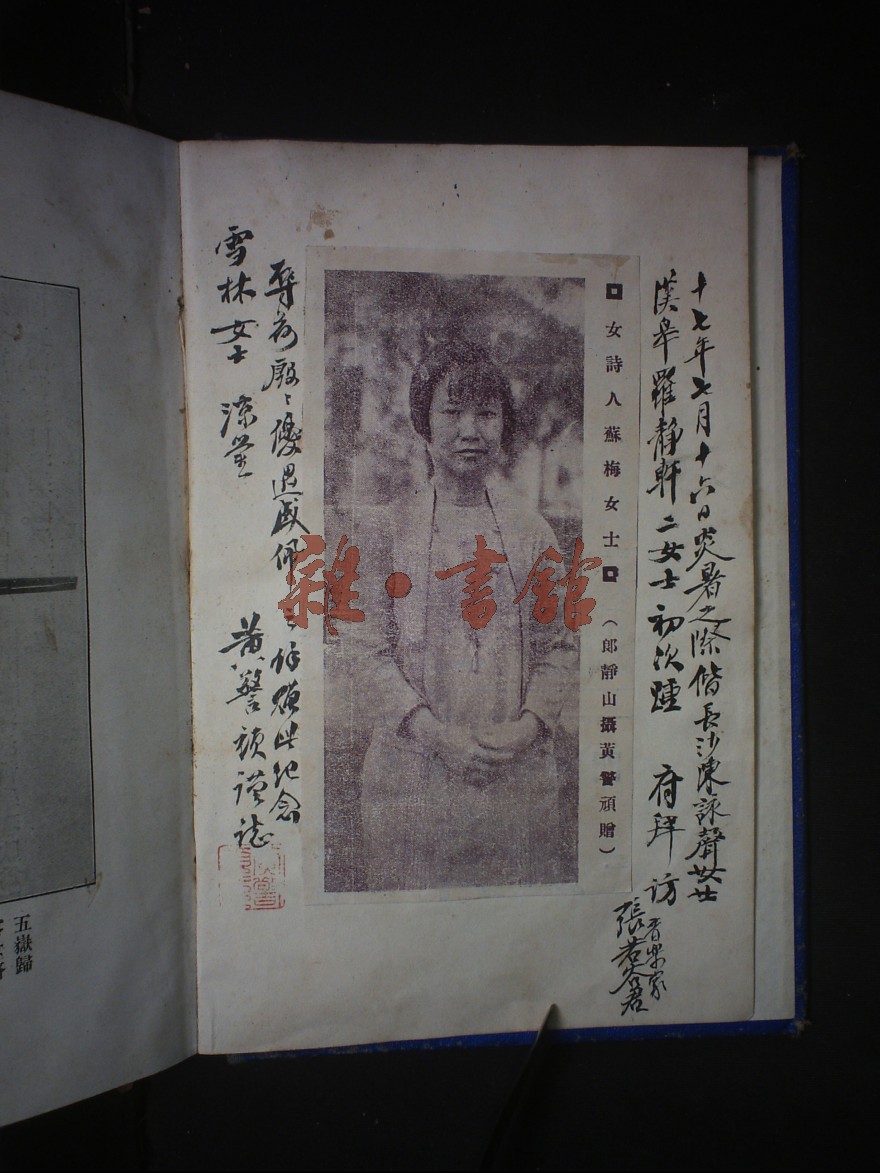 十七年七月十六日炎暑之際偕長沙陳詠聲女士
漢皋羅靜軒二女士初次踵 府拜訪
音樂家
張若谷君
女詩人蘇梅女士（郎靜山攝黃警頑贈）
辱荷殷〻優遇感佩 書館
此紀念
雪林女士 淙鑒 黃警頑謹誌
雜·書館
五嶽歸